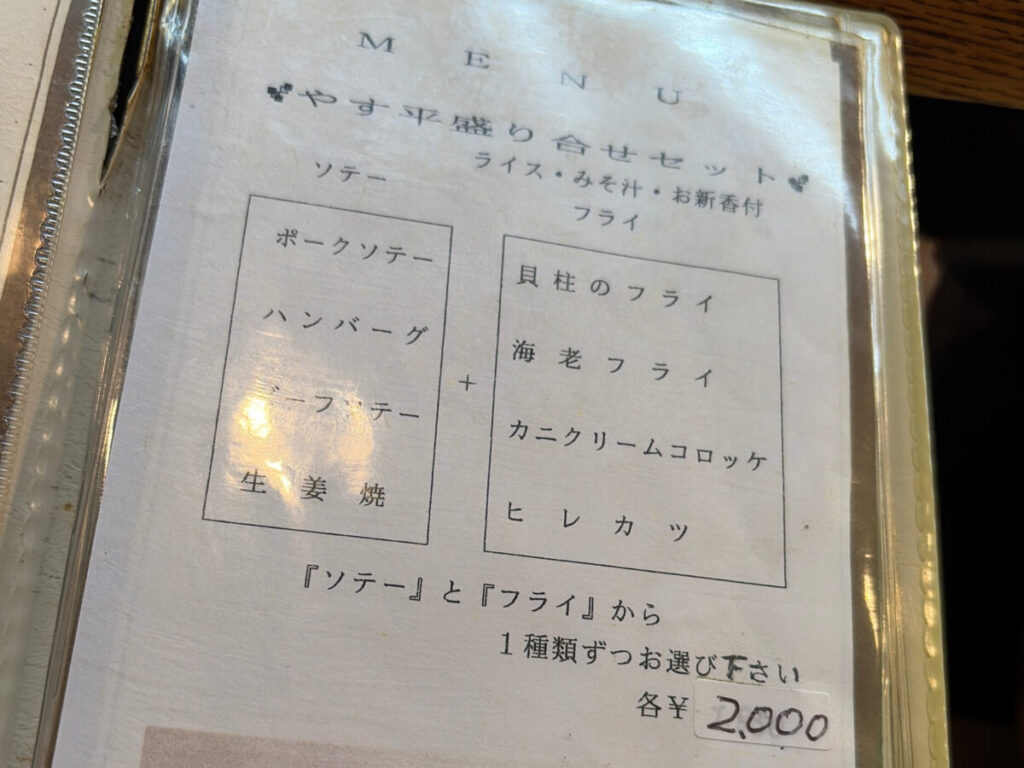 MENU
やす平盛り合せセット
ライス・みそ汁・お新香付
ソテー
ポークソテー
ハンバーグ
ビーフソテー
生姜焼
+
フライ
貝柱のフライ
海老フライ
カニクリームコロッケ
ヒレカツ
『ソテー』と『フライ』から
1種類ずつお選び下さい
各¥ 2,000